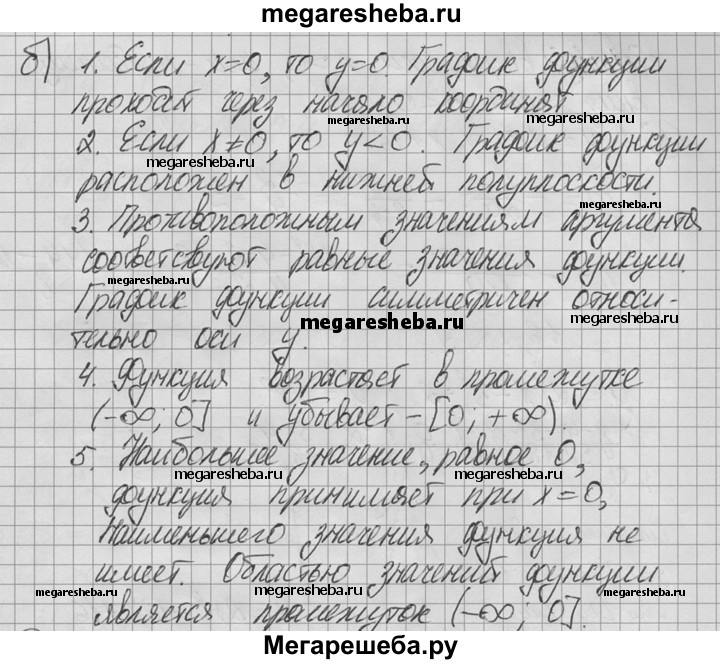 megaresheba.ru
б) 1. Если x=0, то y=0. График функции
проходит через начало координат
megaresheba.ru megaresheba.ru
2. Если x≠0, то y<0. График функции
megaresheba.ru megaresheba.ru
расположен в нижней полуплоскости.
3. Противоположным значениям аргумента
соответствуют равные значения функции.
megaresheba.ru megaresheba.ru
График функции симметричен относи-
megaresheba.ru
тельно оси y.
4. Функция возрастает в промежутке
(-∞; 0] и убывает - [0; +∞).
megaresheba.ru megaresheba.ru
5. Наибольшее значение, равное 0,
megaresheba.ru megaresheba.ru
функция принимает при x=0,
Наименьшего значения функция не
имеет. Областью значений функции
megaresheba.ru megaresheba.ru
является промежуток (-∞; 0].
Мегарешеба.ру